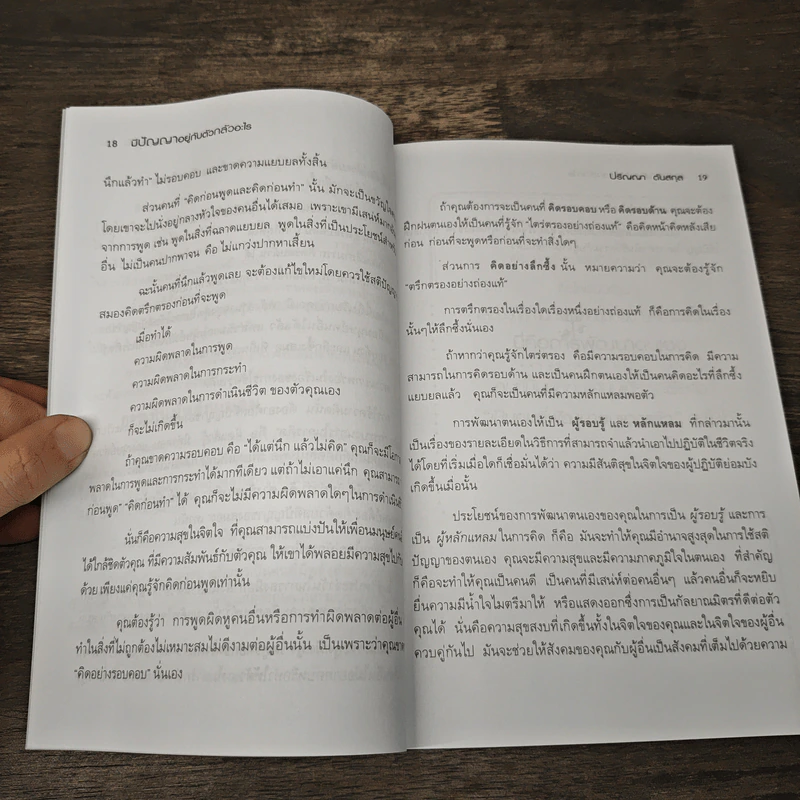 18 มีปัญญาอยู่กับตัวกลัวอะไร
นึกแล้วทำ” ไม่รอบคอบ และขาดความแยบยลทั้งสิ้น
ส่วนคนที่ “คิดก่อนพูดและคิดก่อนทำ” นั้น มักจะเป็นขวัญใจ
โดยเขาจะไปนั่งอยู่กลางหัวใจของคนอื่นได้เสมอ เพราะเขามีเสน่ห์มาก
จากการพูด เช่น พูดในสิ่งที่ฉลาดแยบยล พูดในสิ่งที่เป็นประโยชน์ต่อ
อื่น ไม่เป็นคนปากพาจน คือ ไม่แกว่งปากหาเสี้ยน
ฉะนั้นคนที่นึกแล้วพูดเลย จะต้องแก้ไขใหม่โดยควรใช้สติปัญญา
สมองคิดตรึกตรองก่อนที่จะพูด
เมื่อทำได้
ความผิดพลาดในการพูด
ความผิดพลาดในการกระทำ
ความผิดพลาดในการดำเนินชีวิต ของตัวคุณเอง
ก็จะไม่เกิดขึ้น
ถ้าคุณขาดความรอบคอบ คือ “ได้แต่นึก แล้วไม่คิด” คุณก็จะมี
พลาดในการพูดและการกระทำได้มากทีเดียว แต่ถ้าไม่เอาแค่นึก คุณสามารถ
ก่อนพูด” “คิดก่อนทำ” ได้ คุณก็จะไม่มีความผิดพลาดใดๆในการ
นั่นก็คือความสุขในจิตใจ ที่คุณสามารถแบ่งปันให้เพื่อนมนุษย์
ได้ใกล้ชิดตัวคุณ ที่มีความสัมพันธ์กับตัวคุณ ให้เขาได้พลอยมีความสุขไป
ด้วย เพียงแค่คุณรู้จักคิดก่อนพูดเท่านั้น
คุณต้องรู้ว่า การพูดผิดหูคนอื่นหรือการทำผิดพลาดต่อผู้อื่น
ทำในสิ่งที่ไม่ถูกต้องไม่เหมาะสมไม่ดีงามต่อผู้อื่นนั้น เป็นเพราะว่าคุณขาด
“คิดอย่างรอบคอบ” นั่นเอง
ปริญญา ตันสกุล 19
ถ้าคุณต้องการจะเป็นคนที่ คิดรอบคอบ หรือ คิดรอบด้าน คุณจะต้อง
ฝึกฝนตนเองให้เป็นคนที่รู้จัก “ไตร่ตรองอย่างถ่องแท้” คือคิดหน้าคิดหลังเสีย
ก่อน ก่อนที่จะพูดหรือก่อนที่จะทำสิ่งใดๆ
ส่วนการ คิดอย่างลึกซึ้ง นั้น หมายความว่า คุณจะต้องรู้จัก
“ตรึกตรองอย่างถ่องแท้”
การตรึกตรองในเรื่องใดเรื่องหนึ่งอย่างถ่องแท้ ก็คือการคิดในเรื่อง
นั้นๆให้ลึกซึ้งนั่นเอง
ถ้าหากว่าคุณรู้จักไตร่ตรอง คือมีความรอบคอบในการคิด มีความ
สามารถในการคิดรอบด้าน และเป็นคนฝึกตนเองให้เป็นคนคิดอะไรที่ลึกซึ้ง
แยบยลแล้ว คุณก็จะเป็นคนที่มีความหลักแหลมพอตัว
การพัฒนาตนเองให้เป็น ผู้รอบรู้ และ หลักแหลม ที่กล่าวมานั้น
เป็นเรื่องของรายละเอียดในวิธีการที่สามารถจำแล้วนำเอาไปปฏิบัติในชีวิตจริง
ได้โดยที่เริ่มเมื่อใดก็เชื่อมั่นได้ว่า ความมีสันติสุขในจิตใจของผู้ปฏิบัติย่อมบัง
เกิดขึ้นเมื่อนั้น
ประโยชน์ของการพัฒนาตนเองของคุณในการเป็น ผู้รอบรู้ และการ
เป็น ผู้หลักแหลม ในการคิด ก็คือ มันจะทำให้คุณมีอำนาจสูงสุดในการใช้สติ
ปัญญาของตนเอง คุณจะมีความสุขและมีความภาคภูมิใจในตนเอง ที่สำคัญ
ก็คือจะทำให้คุณเป็นคนดี เป็นคนที่มีเสน่ห์ต่อคนอื่นๆ แล้วคนอื่นก็จะหยิบ
ยื่นความมีน้ำใจไมตรีมาให้ หรือแสดงออกซึ่งการเป็นกัลยาณมิตรที่ดีต่อตัว
คุณได้ นั่นคือความสุขสงบที่เกิดขึ้นทั้งในจิตใจของคุณและในจิตใจของผู้อื่น
ควบคู่กันไป มันจะช่วยให้สังคมของคุณกับผู้อื่นเป็นสังคมที่เต็มไปด้วยความ